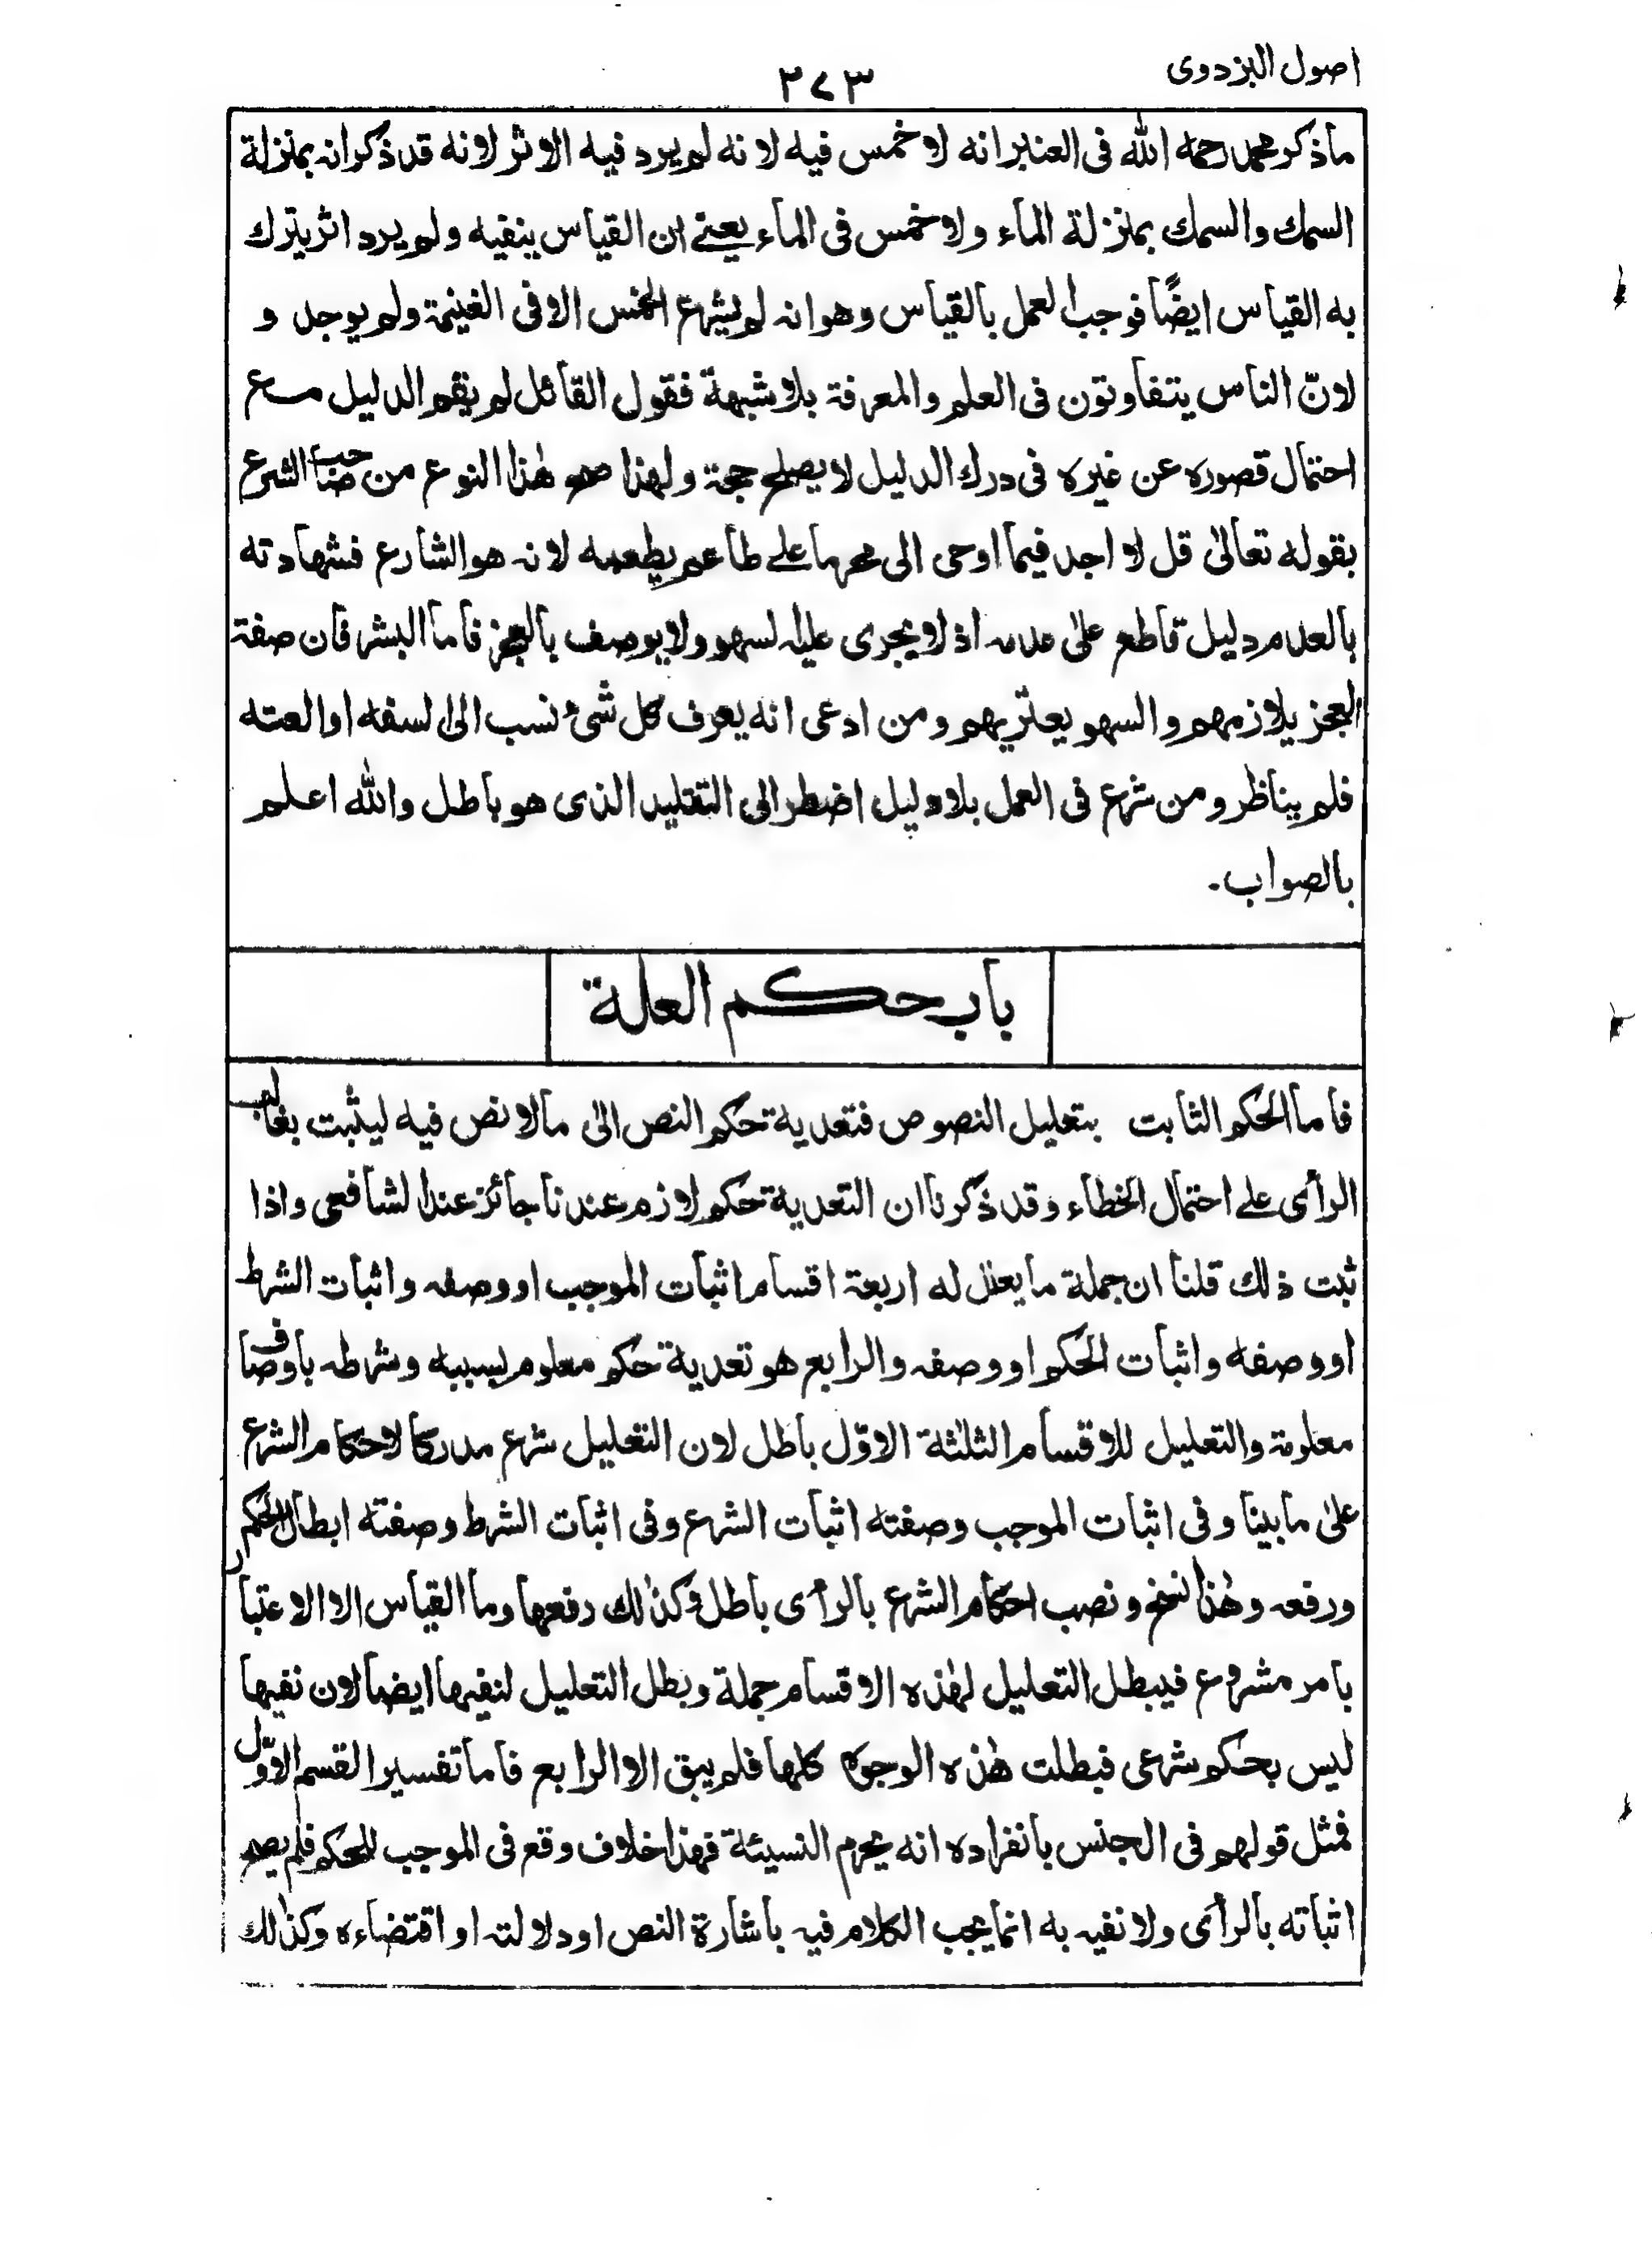 اصول البزدوى
٢٧٣
ما ذكر محمد رحمه الله فى العنبر انه لا خمس فيه لانه لم يرد فيه الاثر لانه قد ذكر انه بمنزلة
السمك والسمك بمنزلة الماء ولا خمس فى الماء يعنے ان القياس ينفيه ولم يرد اثر يترك
به القياس ايضًا فوجب العمل بالقياس وهو انه لم يشرع الخمس الا فى الغنيمة ولم يوجد و
لانّ الناس يتفاوتون فى العلم والمعرفة بلا شبهة فقول القائل لم يقم الدليل مع
احتمال قصوره عن غيره فى درك الدليل لا يصلح حجة ولهذا صح هٰذا النوع من صاحب الشرع
بقوله تعالىٰ قل لا اجد فيما اوحى الى محرما علے طاعم يطعمه لانه هو الشارع فشهادته
بالعدم دليل قاطع علىٰ عدمه اذ لا يجرى عليه السهو ولا يوصف بالعجز فاما البشر فان صفة
العجز يلازمهم والسهو يعتريهم ومن ادعى انه يعرف كل شئ نسب الى السفه او العته
فلم يناظر ومن شرع فى العمل بلا دليل اضطر الى التقليد الذى هو باطل والله اعلم
بالصواب.
باب حكم العلة
فاما الحكم الثابت بتعليل النصوص فتعدية حكم النص الىٰ ما لا نص فيه ليثبت بغالب
الرأى علے احتمال الخطاء وقد ذكرنا ان التعدية حكم لازم عندنا جائز عند الشافعى واذا
ثبت ذلك قلنا ان جملة ما يعلل له اربعة اقسام اثبات الموجب او وصفه واثبات الشرط
او وصفه واثبات الحكم او وصفه والرابع هو تعدية حكم معلوم بسببه وشرطه باوصاف
معلومة والتعليل للاقسام الثلٰثة الاوّل باطل لان التعليل شرع مدركا لاحكام الشرع
علىٰ ما بينا وفى اثبات الموجب وصفته اثبات الشرع وفى اثبات الشرط وصفته ابطال الحكم
ورفعه وهٰذا نسخ ونصب احكام الشرع بالرأى باطل وكذٰلك رفعها وما القياس الا الاعتبار
بامر مشروع فيبطل التعليل لهٰذه الاقسام جملة وبطل التعليل لنفيها ايضا لان نفيها
ليس بحكم شرعى فبطلت هٰذه الوجوه كلها فلم يبق الا الرابع فاما تفسير القسم الاوّل
فمثل قولهم فى الجنس بانفراده انه يحرم النسيئة فهذا خلاف وقع فى الموجب للحكم فلم يصح
اثباته بالرأى ولا نفيه به انما يجب الكلام فيه باشارة النص او دلالته او اقتضاءه وكذٰلك